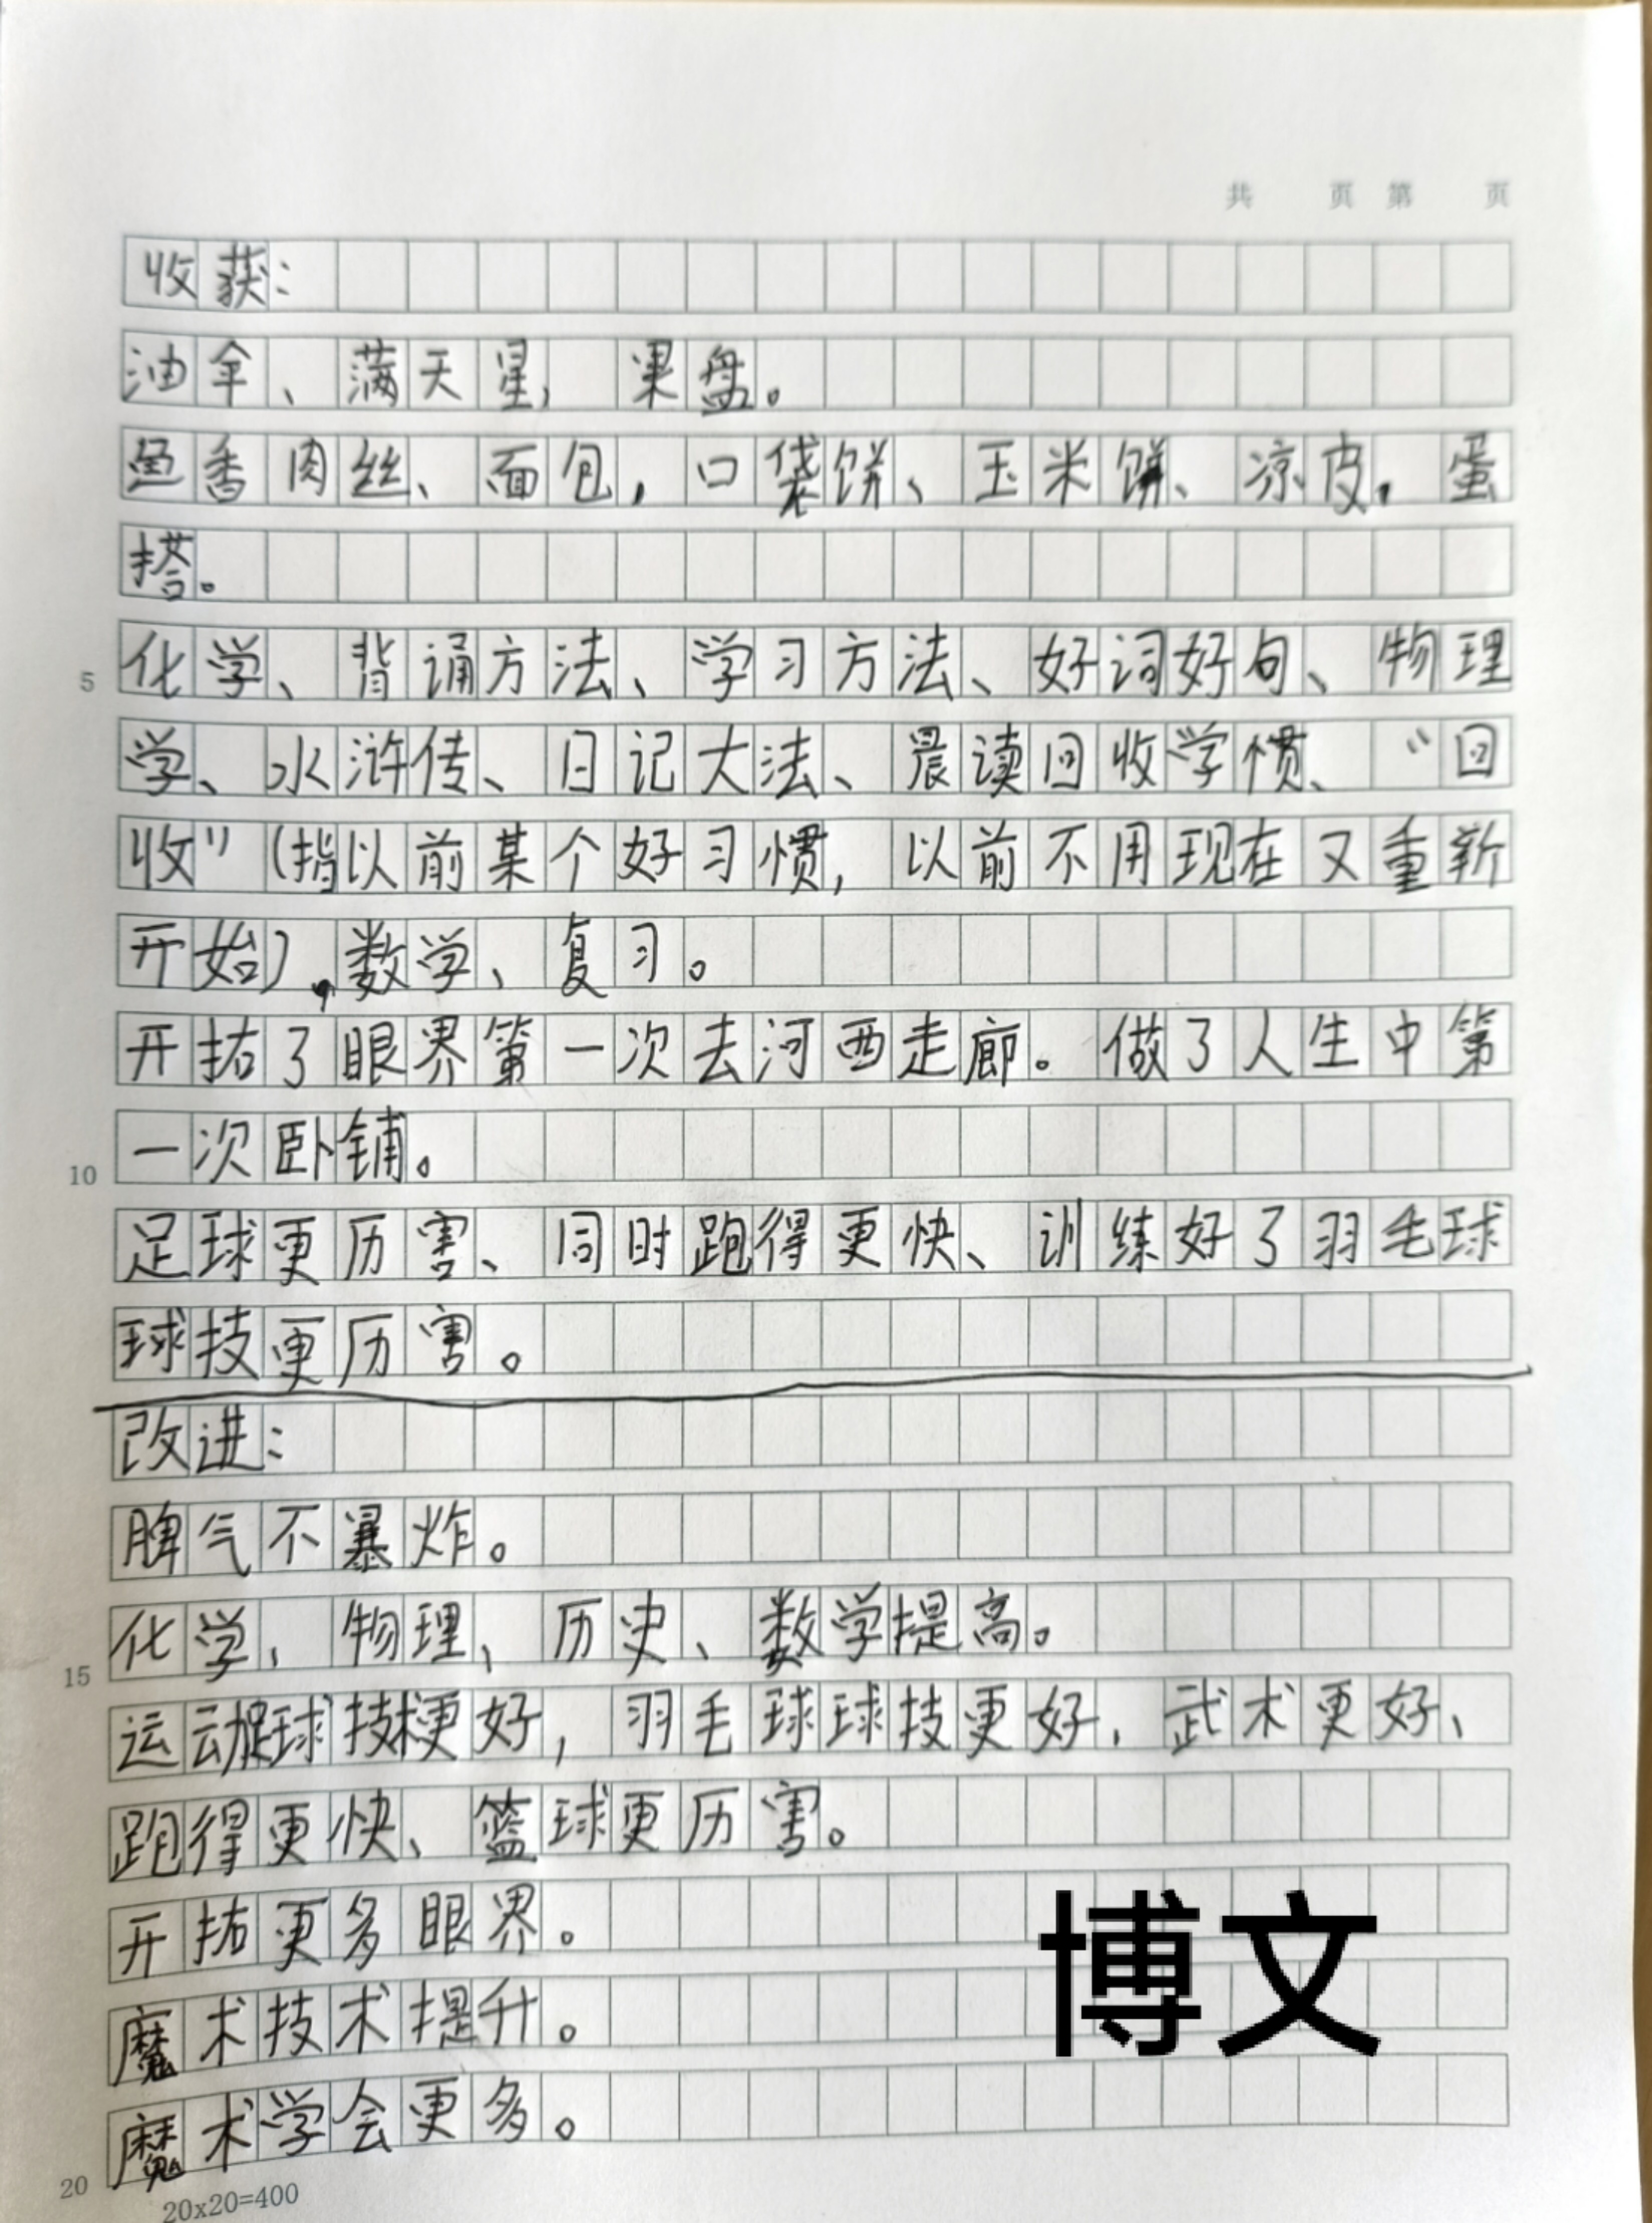 共 页 第 页
收获：
油伞、满天星，果盘。
鱼香肉丝、面包，口袋饼、玉米饼、凉皮，蛋
搭。
5 化学、背诵方法、学习方法、好词好句、物理
学、水浒传、日记大法、晨读回收学惯、“回
收”(指以前某个好习惯，以前不用现在又重新
开始)，数学、复习。
开拓了眼界第一次去河西走廊。做了人生中第
10 一次卧铺。
足球更历害、同时跑得更快、训练好了羽毛球
球技更历害。
改进：
脾气不暴炸。
15 化学，物理、历史、数学提高。
运动足球技术更好，羽毛球球技更好，武术更好、
跑得更快、篮球更历害。
开拓更多眼界。
魔术技术提升。
20 魔术学会更多。
20x20=400
博文